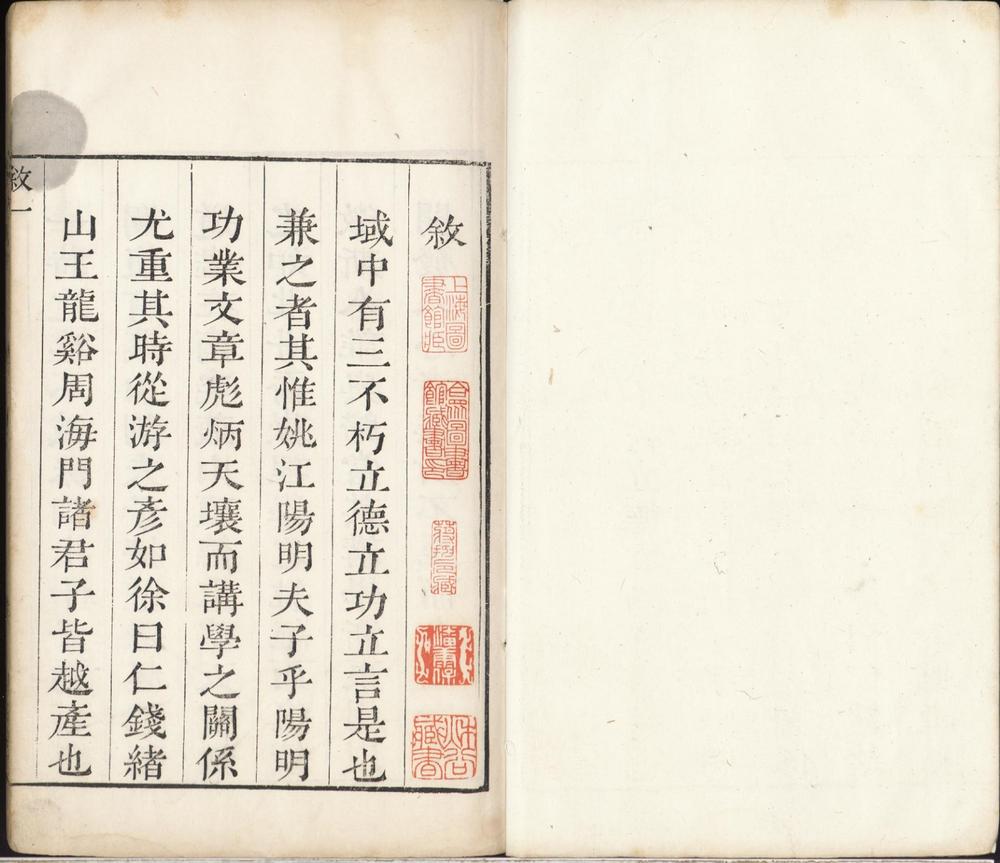 敘
上海圖
書館藏
合眾圖書
館藏書印
域中有三不朽立德立功立言是也
兼之者其惟姚江陽明夫子乎陽明
功業文章彪炳天壤而講學之關係
尤重其時從游之彥如徐曰仁錢緒
山王龍谿周海門諸君子皆越產也
敘一